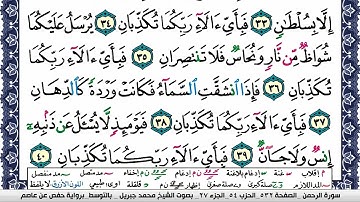 إِلَّا بِسُلْطَٰنٍ ٣٣ فَبِأَيِّ ءَالَآءِ رَبِّكُمَا تُكَذِّبَانِ ٣٤ يُرْسَلُ عَلَيْكُمَا
شُوَاظٌ مِّن نَّارٍ وَنُحَاسٌ فَلَا تَنتَصِرَانِ ٣٥ فَبِأَيِّ ءَالَآءِ رَبِّكُمَا
تُكَذِّبَانِ ٣٦ فَإِذَا ٱنشَقَّتِ ٱلسَّمَآءُ فَكَانَتْ وَرْدَةً كَٱلدِّهَانِ
٣٧ فَبِأَيِّ ءَالَآءِ رَبِّكُمَا تُكَذِّبَانِ ٣٨ فَيَوْمَئِذٍ لَّا يُسْـَٔلُ عَن ذَنۢبِهِۦٓ
إِنسٌ وَلَا جَآنٌّ ٣٩ فَبِأَيِّ ءَالَآءِ رَبِّكُمَا تُكَذِّبَانِ ٤٠
سورة الرحمن الصفحة ٥٣٢ الحزب ٥٤ الجزء ٢٧ بصوت الشيخ محمد جبريل بالتوسط برواية حفص عن عاصم